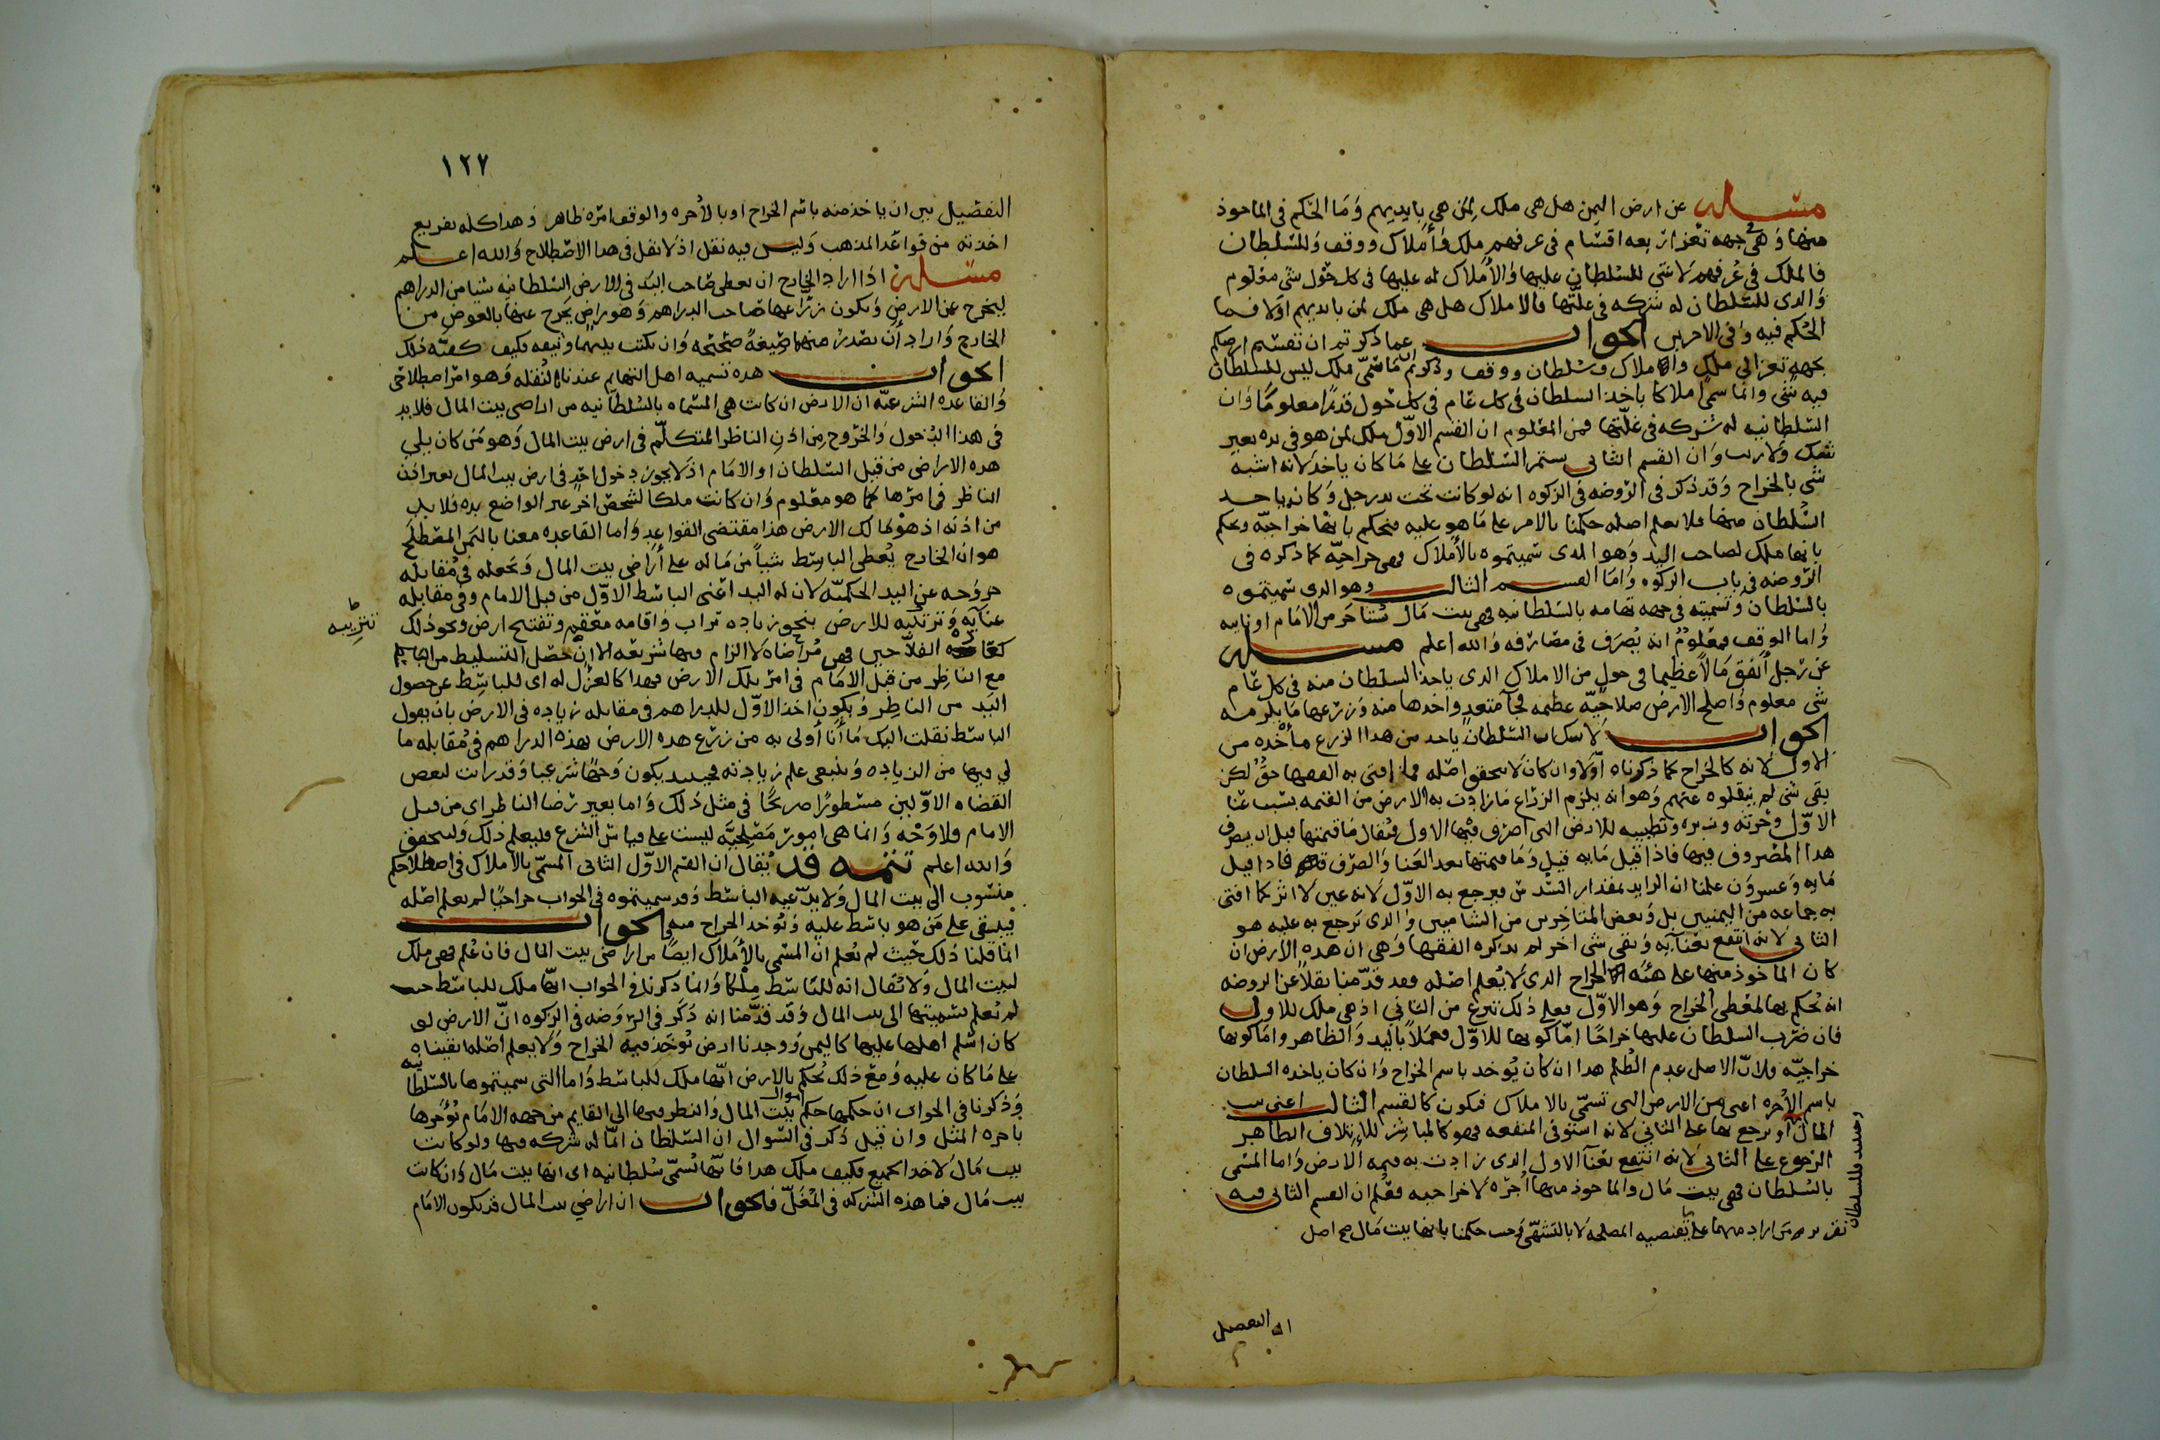 مسئله عن ارض اليمن هل هى ملك لمن هى بايديهم وما الحكم فى الماخوذ
منها وهى جهه تعز اربعه اقسام فى عرفهم ملك وأملاك ووقف وللسلطان
فالملك فى عرفهم لا شى للسلطان عليها والأملاك له عليها فى كل حول شى معلوم
والذى للسلطان له شركه فى غلتها فالاملاك هل هى ملك لمن بايديهم اولا فما
الحكم فيه وفى الاخرين الجواب عما ذكرتم ان تقسيم ارضكم
بجهه تعز الى ملك واملاك وسلطان ووقف وذكرتم ان ما سمى ملك ليس للسلطان
فيه شى وانما سمى املاكا ياخذ السلطان فى كل عام فى كل حول قدرا معلوما وان
السلطانيه له شركه فى غلتها فمن المعلوم ان القسم الاول ملك لمن هو فى يده بغير
شك ولا ريب وان القسم الثانى يستمر السلطان على ما كان ياخذ لانه اشبه
شى بالخراج وقد ذكر فى الروضه فى الزكوه انه لو كانت تحت يد رجل وكان ياخذ
السلطان منها فلا يعلم اصله حكمنا بالامر على ما هو عليه فنحكم بانها خراجيه ونحكم
بانها ملك لصاحب اليد وهو الذى سميتموه بالأملاك فهى خراجيه كما ذكره فى
الروضه فى باب الزكوه واما القسم الثالث وهو الذى سميتموه
بالسلطان وتسميته فى جهه تهامه بالسلطانيه فهى بيت مال تستاجر من الامام او نايبه
واما الوقف فمعلوم انه يصرف فى مصارفه والله اعلم مسئله
عن رجل أنفق مالا عظيما فى حول من الاملاك الذى ياخذ السلطان منه فى كل عام
شى معلوم واصلح الارض صلاحيه عظيمه فجا متعد واخدها منه وزرعها ما يلزمه
الجواب لا شك ان السلطان ياخد من هذا الزرع ما أخذه من
الاول لانه كالخراج كما ذكرناه أولا وان كان لا يتحقق اصله افتى به الفقها لكن
بقى شى لم ينقلوه عنهم وهو انه يلزم الزراع ما زادت به الارض من القيمه بسبب عنا
الاول وحرثه وتطييبه للارض التى اصرف فيها الاول فيقال ما قيمتها قبل ان يصرف
هذا المصروف فيها فاذا قيل مايه قيل وما قيمتها بعد العنا والصرف فاذا قيل
مايه وعشرون علمنا ان الزايد بمقدار السدس فيرجع به الاول لانه عين لا اثر كما افتى
به جماعه من اليمنيين بل وبعض المتاخرين من الشاميين والذى يرجع به عليه هو
الثانى لانه انتفع بعنايه وبقى شى اخر لم يذكره الفقها وهى ان هذه الارض ان
كان الماخوذ منها على هيئه الخراج الذى لا يعلم اصله فقد قدمنا نقلا عن الروضه
انه يحكم بها لمعطى الخراج وهو الاول فعلى ذلك تنزع من الثانى اذ هى ملك للاول
فان ضرب السلطان عليها خراجا اما كونها للاول فعملا باليد والظاهر واما كونها
خراجيه فلان الاصل عدم الظلم هذا ان كان يوخد باسم الخراج وان كان ياخده السلطان
باسم الأجره اعنى من الارض التى تسمى بالاملاك فيكون كالقسم الثالث اعنى بيت
المال أو يرجع بها على الثانى لانه استوفى المنفعه فهو كالمباشر للاتلاف الظاهر
الرجوع على الثانى لانه انتفع بعنا الاول الذى زادت به قيمه الارض واما المسمى
بالسلطان فهى بيت مال والماخوذ منها اجره لا خراجيه فعلم ان القسم الثانى فيه
وحينيد فللسلطان
تقرير من اراد منهما على ما تقتضيه المصلحه لا بالتشهى وحيث حكمنا بانها بيت مال صح اصل
التفصيل
١٢٧
التفصيل بين ان ياخذ منه باسم الخراج او بالأجره والوقف امره ظاهر وهذا كله تفريع
اخذته من قواعد المذهب وليس فيه نقل اذ لا نقل فى هذا الاصطلاح والله اعلم
مسئله اذا اراد الخارج ان يعطى صاحب اليد فى الارض السلطانيه شيا من الدراهم
ليخرج عن الارض ويكون زراعها صاحب الدراهم وهو راض يخرج عنها بالعوض من
الخارج واراد أن تصدر منهما صيغة صحيحه وان يكتب بينهما وثيقه فكيف كيفيه ذلك
الجواب هذه تسميه اهل التهايم عندنا النقله وهو امر اصطلاحى
والقاعده الشرعيه ان الارض ان كانت هى المسماه بالسلطانيه من اراضى بيت المال فلا بد
فى هذا الدخول والخروج من اذن الناظر المتكلم فى ارض بيت المال وهو من كان يلى
هذه الاراضى من قبل السلطان او الامام اذ لا يجوز دخول احد فى ارض بيت المال بغير اذن
الناظر فى امرها كما هو معلوم وان كانت ملكا لشخص اخر غير الواضع يده فلا بد
من اذنه اذ هو مالك الارض هذا مقتضى القواعد واما القاعده معنا باليمن المصطلح
هو ان الخارج يُعطى الباسط شيأ من ماله على أراضى بيت المال ويجعله فى مقابله
خروجه عن اليد الحكميه لان له اليد اعنى الباسط الاول من قبل الامام وفى مقابله
عنايه وتربيه للارض بنحو زياده تراب واقامه معقم وتفتح ارض ونحو ذلك
تتريبه
الفلاحين فهى مراضاه لا الزام فيها شريعه الا ان حصل التسليط من
مع الناظر من قبل الامام فى امر تلك الارض فهذا كالعزل له اى للباسط عن حصول
اليد من الناظر ويكون اخذ الاول للدراهم فى مقابله زياده فى الارض بان يقول
الباسط نقلت اليك ما أنا أولى به من زرع هذه الارض بهذه الدراهم فى مقابله ما
لى فيها من الزياده وينبغى علم زيادته فحينيد يكون وجها شرعيا وقد رات لبعض
القضاه الاولين مسطورا صريحا فى مثل ذلك واما بغير رضا الناظر اى من قبل
الامام فلا وجه وانما هى امور مصلحيه ليست على قياس الشرع فليعلم ذلك وليتحقق
والله اعلم تتمه قد يقال ان القسم الاول الثانى المسمى بالأملاك فى اصطلاحكم
منسوب الى بيت المال ولا يدعيه الباسط وقد سميتموه فى الجواب خراجيا لم يعلم اصله
فيبقى على من هو باسط عليه وتوخد الخراج منه الجواب
انما قلنا ذلك حيث لم نعلم ان المسمى بالأملاك ايضا من اراضى بيت المال فان علم فهى ملك
لبيت المال ولا نقال انه للباسط ملكا وانما ذكرنا فى الجواب انها ملك للباسط حيث
لم نعلم نسبتها الى بيت المال وقد قدمنا انه ذكر فى الروضه فى الزكوه ان الارض لو
كان اسلم اهلها عليها كاليمن ووجدنا ارض توخذ فيه الخراج ولا يعلم اصله ابقيناه
على ما كان عليه ومع ذلك نحكم بالارض انها ملك للباسط واما التى سميتموها بالسلطانيه
وذكرنا فى الجواب ان حكمها حكم اموال بيت المال والنظر فيها الى القايم من جهه الامام نوجرها
باجره المثل وان قيل ذكر فى السوال ان السلطان انما له شركه فيها ولو كانت
بيت مال لاخذ الجميع فكيف ملك هذا فانها تسمى سلطانيه اى انها بيت مال وان كانت
بيت مال فما هذه الشركه فى المغل فالجواب ان اراضى بيت المال قد يكون الامام